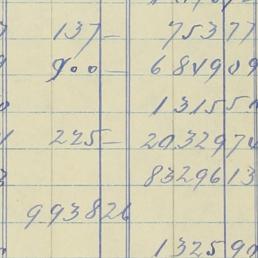 137 — 75377
900 — 684909
131550
225 — 2032974
8329613
993826
132590